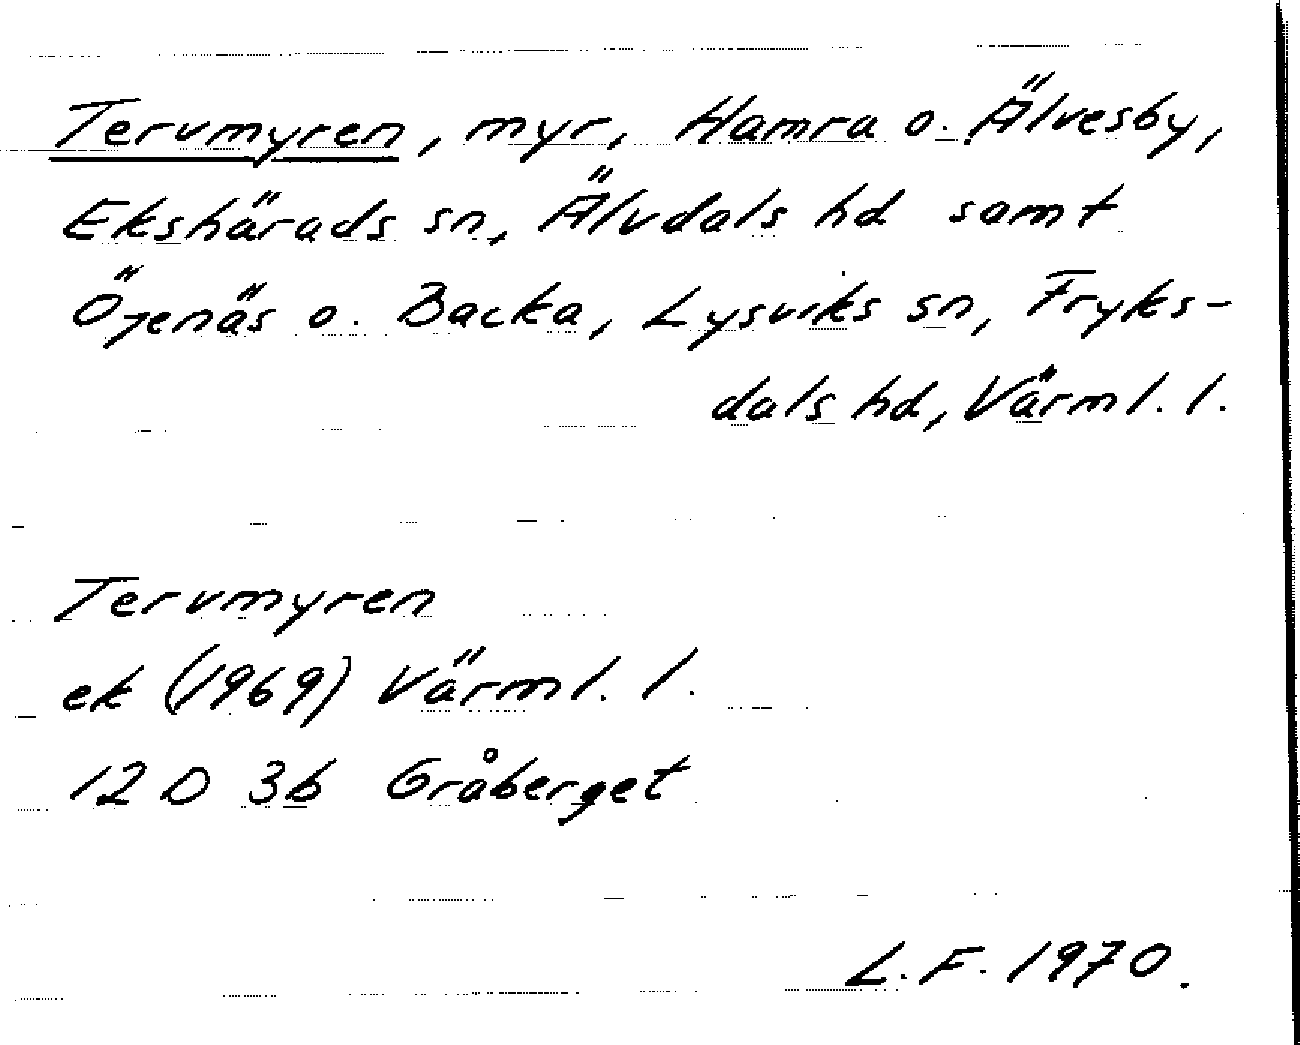 Tervmyren, myr, Hamra o. Älvesby,
Ekshärads sn, Älvdals hd samt
Öjenäs o. Backa, Lysviks sn, Fryks-
dals hd, Värml. l.
Tervmyren
ek (1969) Värml. l.
12 D 3b Gråberget
L. F. 1970.